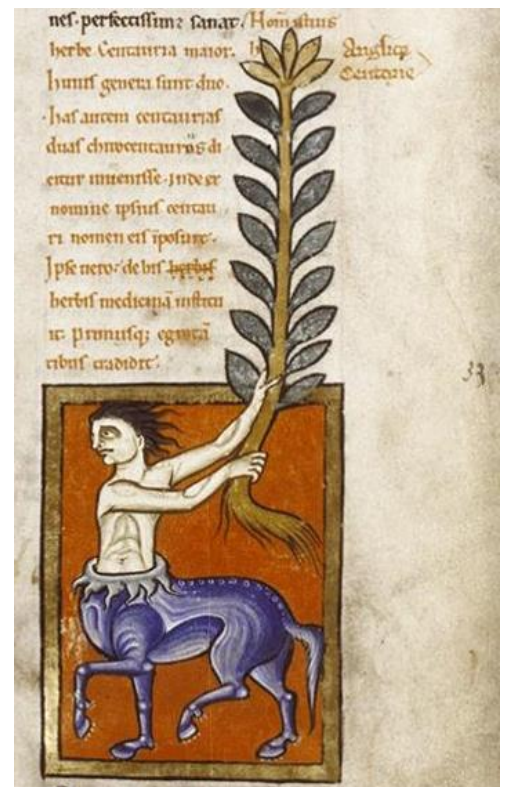 nes. perfectissime sanat. Nom̄ istius
herbe Centauria maior. Anglice
huius genera sunt duo.
has autem centaurias
duas chirocentaurus di
citur inuenisse. Inde ex
nomine ipsius centau
ri nomen eis īposuit.
Ipse uero: de his herbis
herbis medicinā institu
it. Primusq; egrotā
tibus tradidit.
33